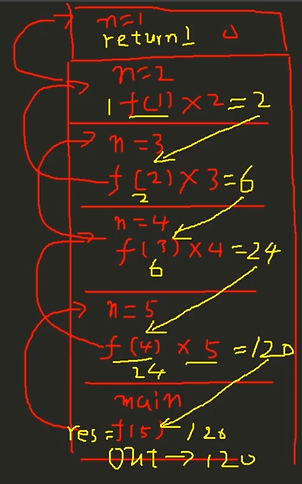 n=1
return 1
n=2
1 f(1) × 2 = 2
n=3
f(2) × 3 = 6
2
n=4
f(3) × 4 = 24
6
n=5
f(4) × 5 = 120
24
main
res = f(5) 120
OUT → 120